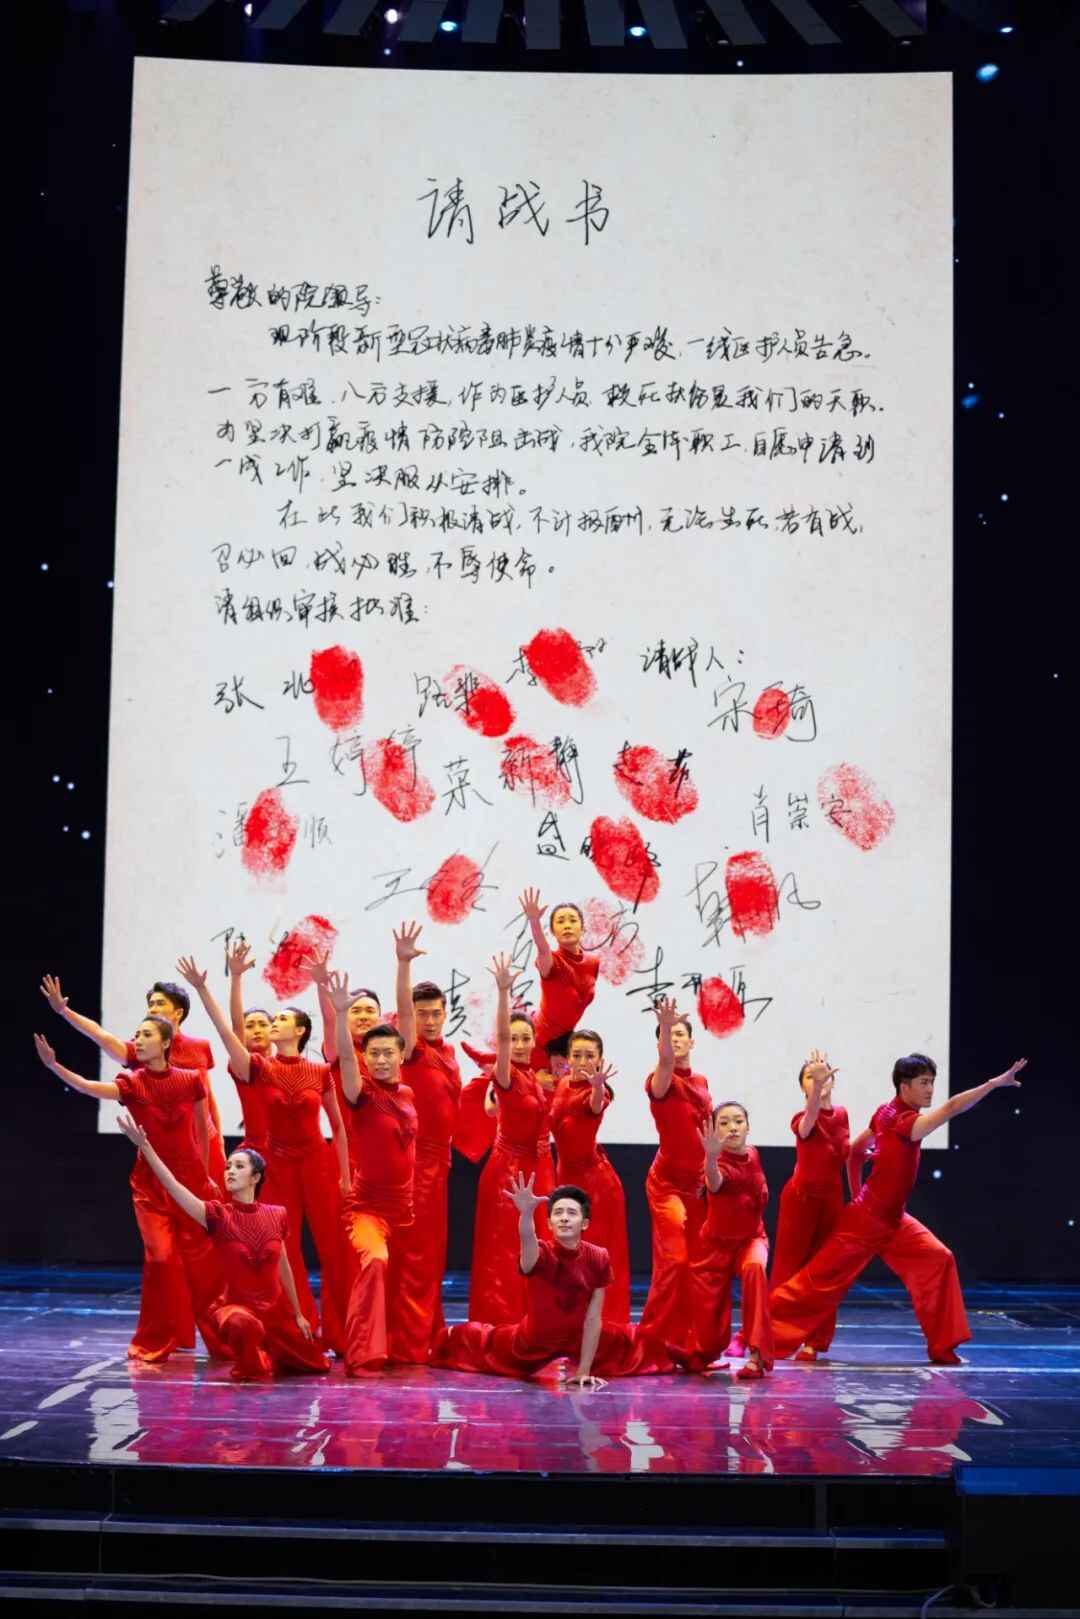 请战书
尊敬的院领导：
现阶段新型冠状病毒肺炎疫情十分严峻，一线医护人员告急。
一方有难，八方支援，作为医护人员，救死扶伤是我们的天职，
为坚决打赢疫情防控阻击战，我院全体职工，自愿申请到
一线工作，坚决服从安排。
在此我们积极请战，不计报酬，无论生死，若有战，
召必回，战必胜，不辱使命。
请组织审核批准：
请战人：
张北 路斐 李 宋琦
王婷婷 菜新静
潘顺 盛 肖崇安
王 韩
方
袁